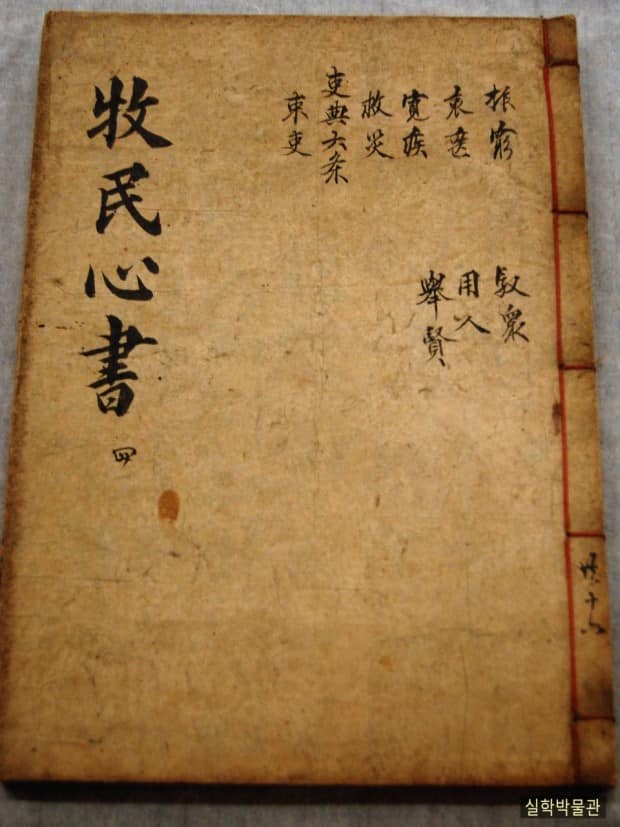 牧民心書 四
振窮
哀喪
寬疾
救災
吏典六条
束吏
馭衆
用人
舉賢
十六
실학박물관